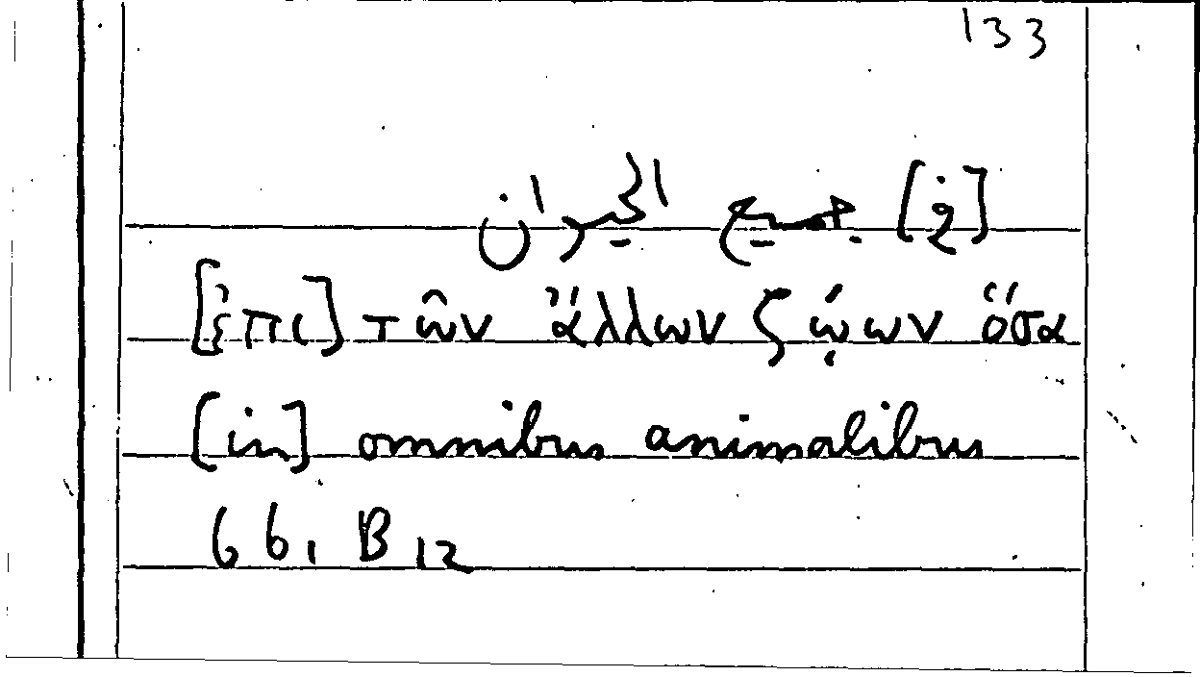 133
[في] جميع الحيوان
[ἐπι] τῶν ἄλλων ζῴων ὅσα
[in] omnibus animalibus
661 B12